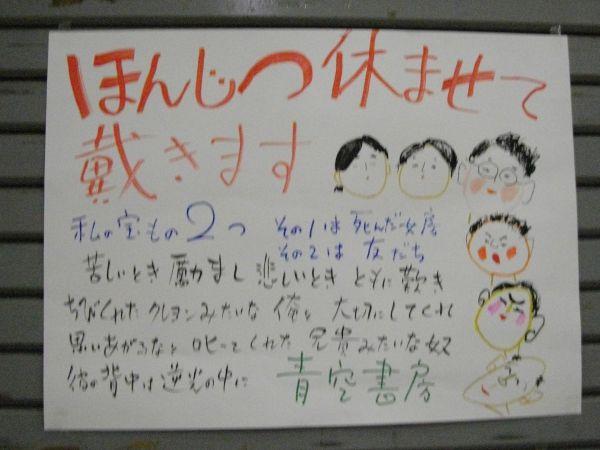 ほんじつ休ませて
戴きます
私の宝もの2つ その1は 死んだ女房
その2は 友だち
苦しいとき 励まし 悲しいとき ともに歎き
ちびくれた クレヨンみたいな 俺を 大切にしてくれ
思いあがるなと 叱ってくれた 兄貴みたいな奴
彼の背中は逆光の中に 青空書房